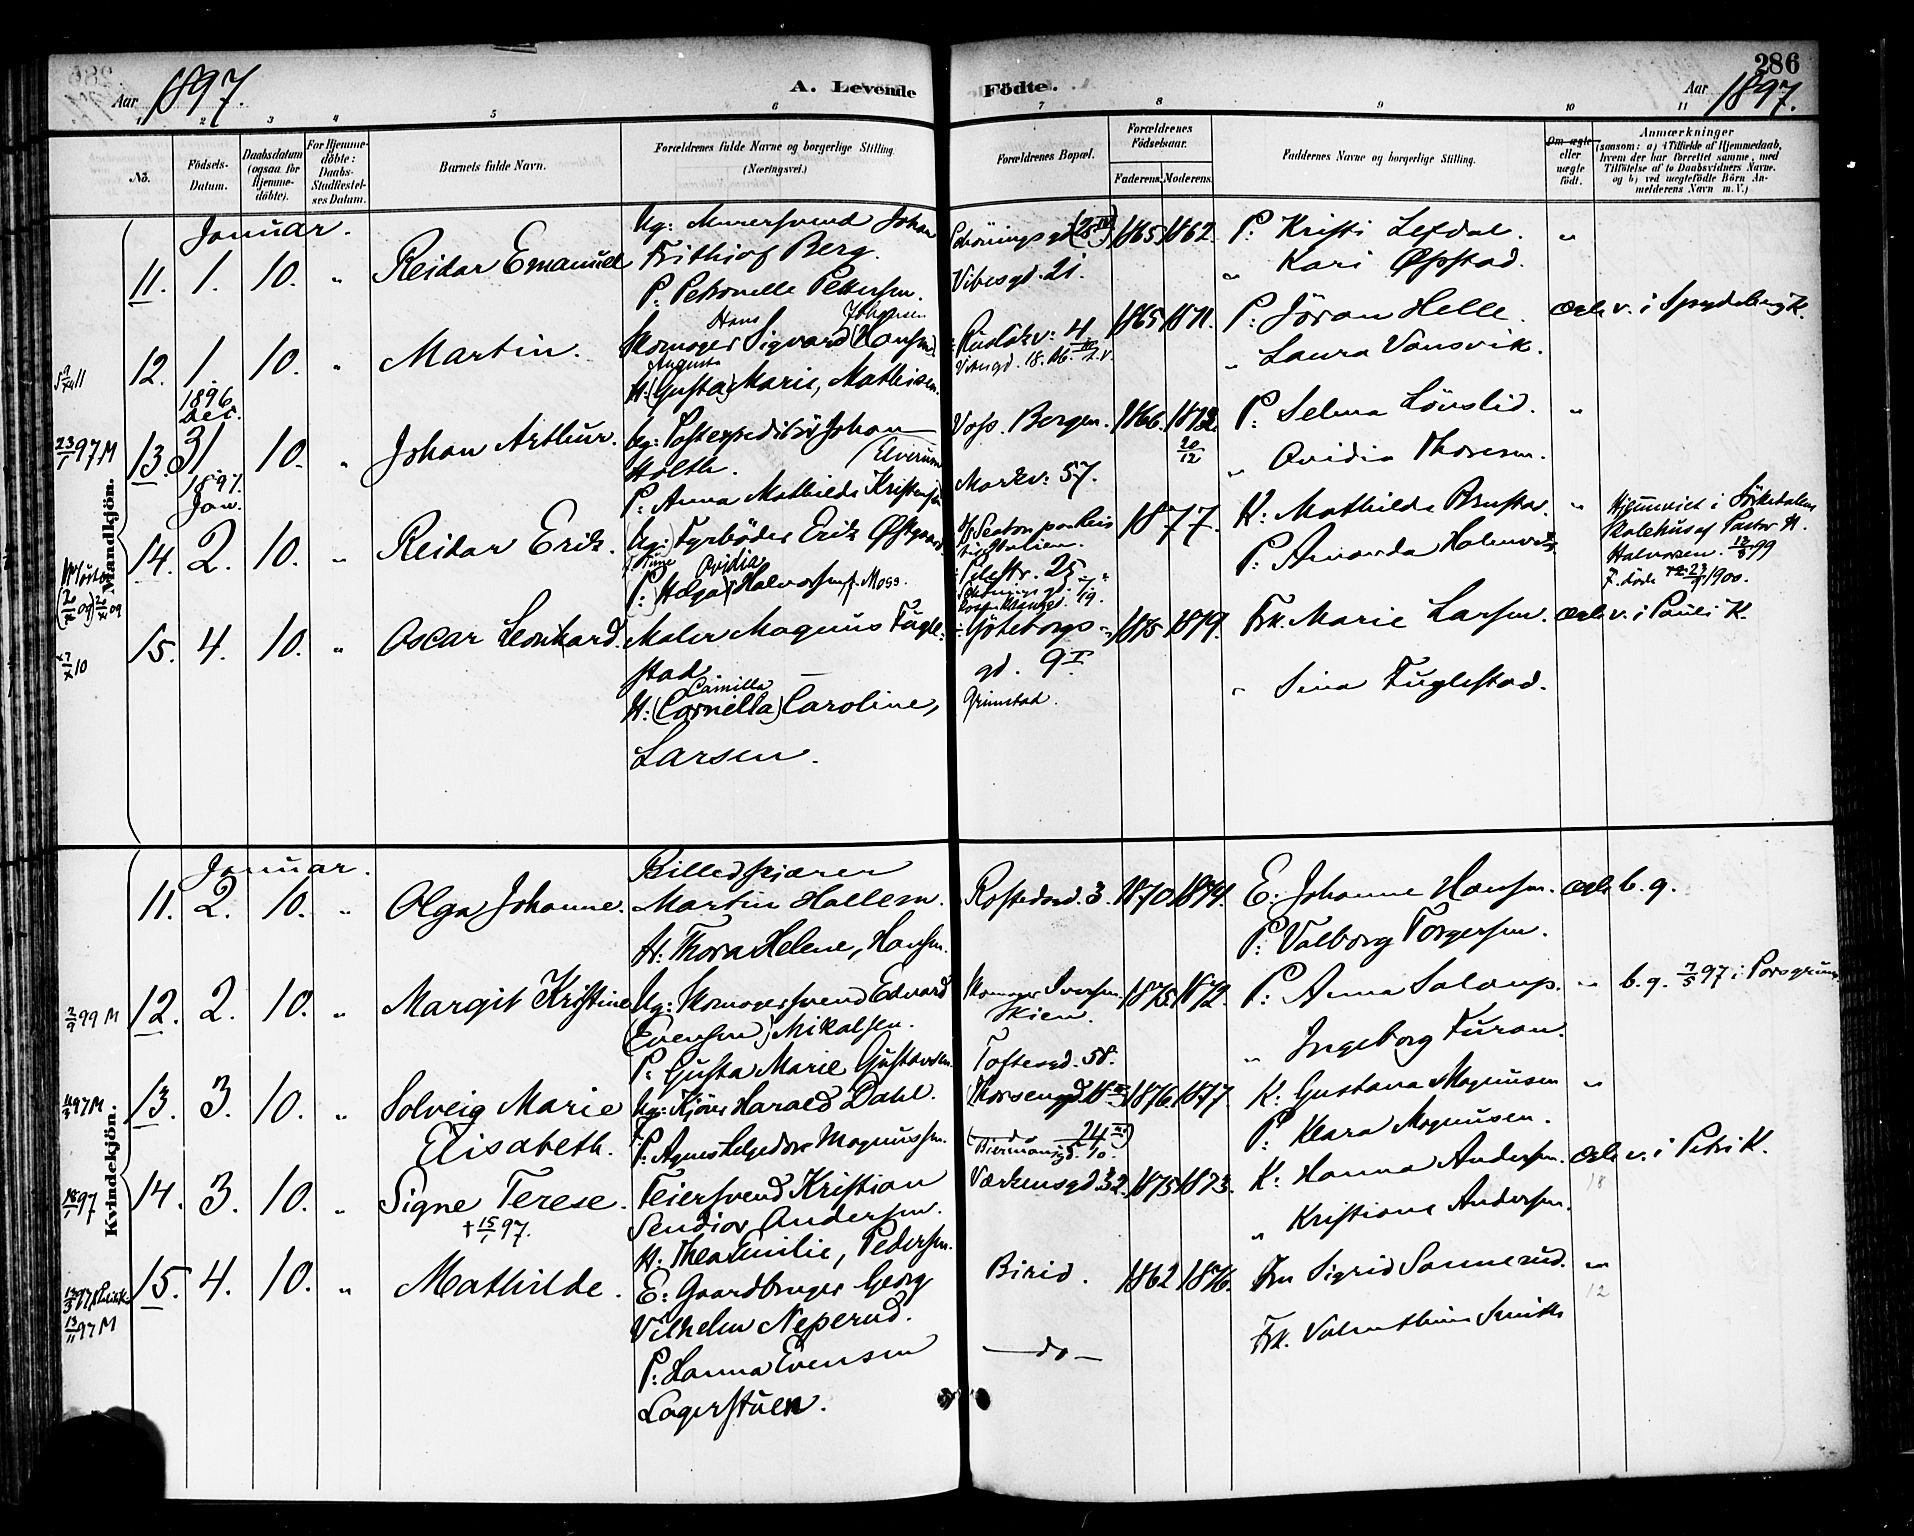 Aar 1897.
A. Levende Födte.
286
Aar 1897.
1 2 3 4 5 6 7 8 9 10 11
No.
Födsels-Datum.
Daabsdatum (ogsaa for Hjemmedöbte).
For Hjemmedöbte: Daabs-Stadfæstelses Datum.
Barnets fulde Navn.
Forældrenes fulde Navne og borgerlige Stilling. (Næringsvei.)
Forældrenes Bopæl.
Forældrenes Födselsaar.
Faderens. Moderens.
Faddernes Navne og borgerlige Stilling.
Om ægte eller uægte födt.
Anmærkninger
(saasom: a) i Tilfælde af Hjemmedaab, hvem der har forrettet samme, med Tilföielse af to Daabsvidners Navne. og b) ved uægtefödte Börn Anmelderens Navn m. V.)
Mandkjön.
Januar.
11. 1. 10. „ Reidar Emanuel
Ug: Murersvend Johan
Frithiof Berg.
P: Petronelle Pettersen.
Vibesgd. 21.
1865 1862.
P: Kristi Lefdal. „
„ Kari Øpstad.
12. 1. 10. „ Martin.
Hans Johansen
Skomager Sigvard (Hansen)
Augusta
H: (Gusta) Marie, Mathisen.
Rudolv: 4
1865 1871.
P: Jöran Helle.
„ Laura Vansvik.
v. i Spydeberg K.
1896
Dec.
23/1 97 M 13. 31 10. „ Johan Arthur.
Ug: Postexpeditör Johan
Holth. (Elverum
P: Anna Mathilde Kristensen
Voss. Bergen.
Markv: 57.
1866. 1872.
20/12
P: Selma Lönslid. „
„ Ovidia Thoresen.
1897.
Jan.
14. 2. 10. „ Reidar Erik.
Ug: Fyrböder Erik Østgaard
Ovidia
P: Helga Halvorsen, f. Moss.
Pilestr. 25
1877.
K: Mathilde Brustad. „
P: Amanda Holmvik
Hjemmeviet i Sörkedalen
Skolehus af Pastor H.
Halvorsen. 12/3 99
F. döde 23/1 1900.
15. 4. 10. „ Oscar Leonhard.
Maler Magnus Fugle-
stad
Camilla
H: (Cornella) Caroline,
Larsen.
Göteborgs-
gd. 9 I.
Grimstad.
1875 1879.
Frk. Marie Larsen.
„ Sina Fuglestad.
v. i Pauli K.
Kvindekjön.
Januar.
11. 2. 10. „ Olga Johanne.
Billedskjærer
Martin Hallem.
H: Thora Helene, Hansen.
Rostedsgd. 3.
1870 1874.
E: Johanne Hansen.
P: Valborg Torgersen.
b. g.
12. 2. 10. „ Margit Kristine
Ug: Skomagersvend Edvard
(Evensen) Mikalsen.
P: Gusta Marie Gustavsen
Skomager Iversen
Skien.
Toftesgd. 58.
1875 1872.
P: Anna Solaug. „
„ Ingeborg Furan.
b. g. 7/5 97 i Porsgrund
13. 3. 10. „ Solveig Marie
Elisabeth.
Ug: Kjörer Harald Dahl.
P: Agnes Helgedora Magnussen.
Thorsengd. 18
1876 1877.
K: Gustava Magnusen „
P: Klara Magnusen.
14. 3. 10. „ Signe Terese.
+ 15/1 97.
Feiersvend Kristian
Sendior Andersen.
H: Thea Emilie, Pedersen.
Værkensgd. 32.
1875 1873.
K: Hanna Andersen.
„ Kristiane Andersen.
v. i Petri K.
18
15. 4. 10. „ Mathilde.
13/11 97 M
E: Gaardbruger Georg
Vilhelm Neperud.
P: Hanna Evensen
Lagerstuen.
Birid.
— do —
1862 1876.
Fru Sigrid Sannerud. „
12
Frk. Valenthine Smith